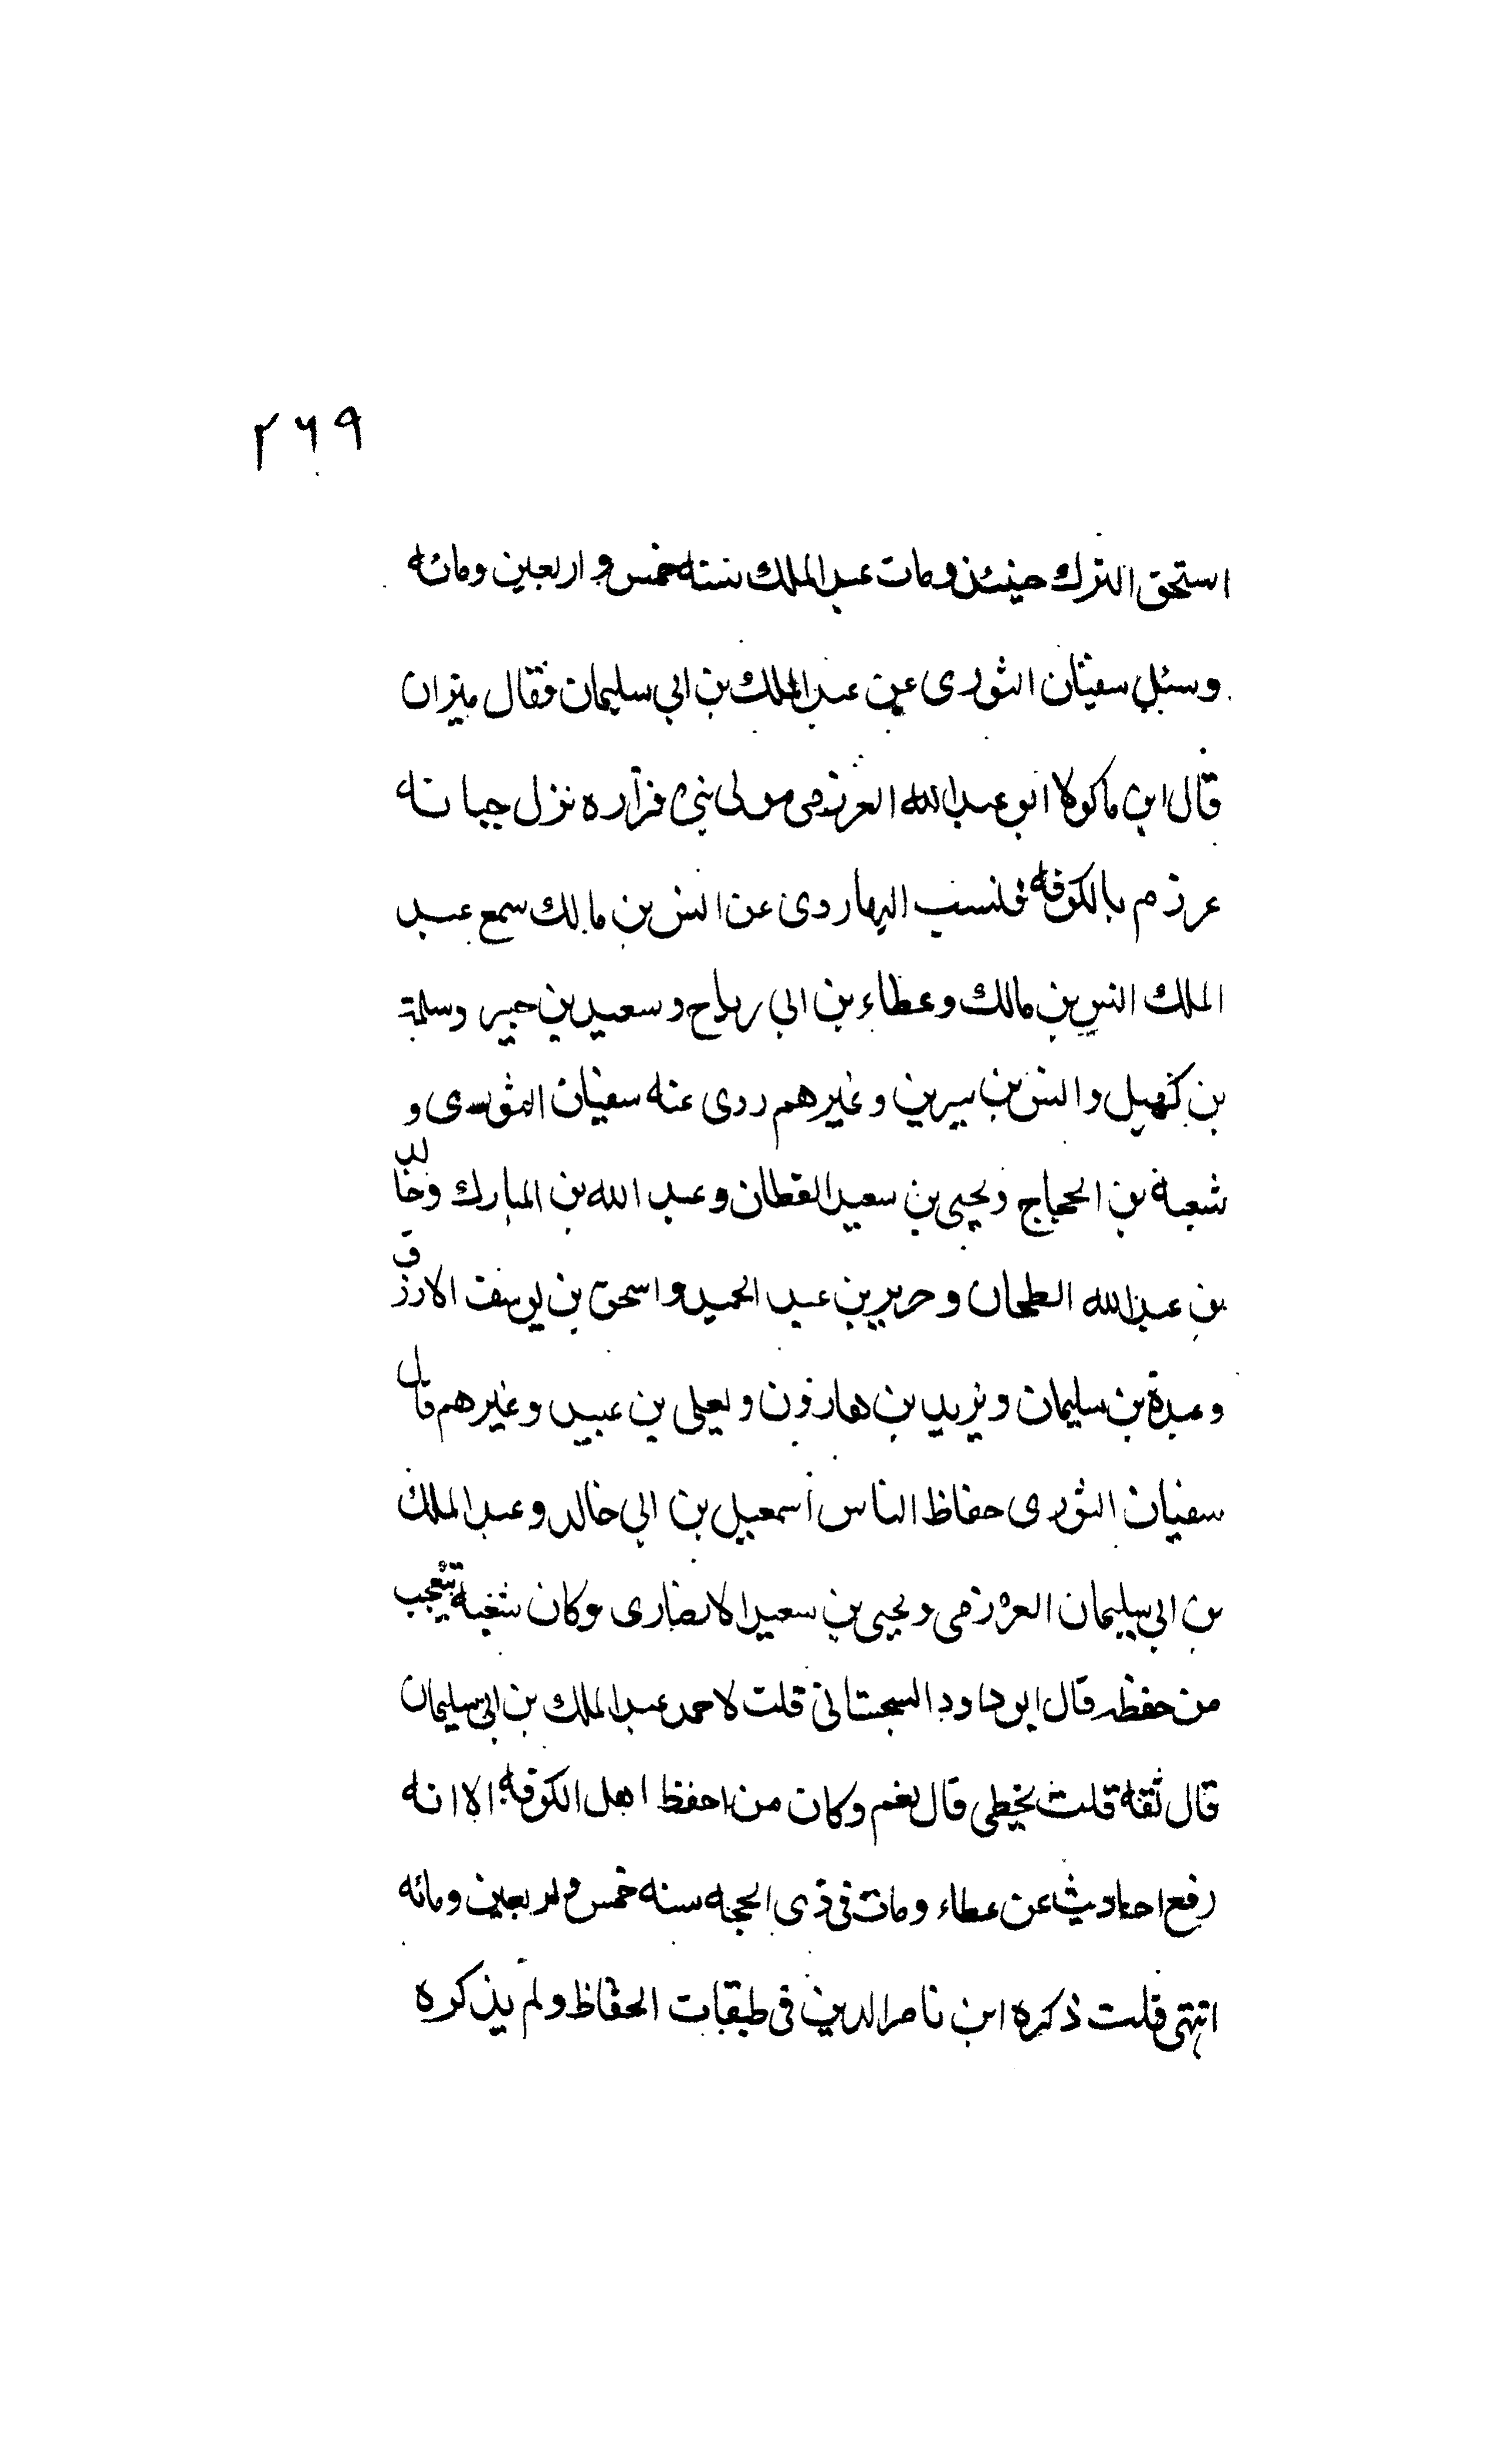 ٢٦٩
استحق الترك حينئذ ومات عبد الملك سنته خمس و اربعين ومائه
وسئل سفيان الثورى عن عبد الملك بن ابي سليمان فقال ميزان
قال ابن ماكولا ابو عبد الله العرزمى مولى بنى فزاره نزل جبانه
عرزم بالكوفه فلنسب اليها روى عن انس بن مالك سمع عبد
الملك انس بن مالك وعطاء بن ابي رباح وسعيد بن جبير وسلمة
بن كهيل وانس بن سيرين وغيرهم روى عنه سفيان الثورى و
شعبة بن الحجاج ويحيى بن سعيد القطان وعبد الله بن المبارك وخالد
بن عبد الله الطحان وجرير بن عبد الحميد واسحق بن يوسف الازرق
وعبدة بن سليمان ويزيد بن هارون ويعلى بن عبيد وغيرهم قال
سفيان الثورى حفاظ الناس اسمعيل بن ابي خالد وعبد الملك
بن ابي سليمان العرزمى ويحيى بن سعيد الانصارى وكان شعبة يتعجب
من حفظه قال ابو داود السجستانى قلت لاحمد عبد الملك بن ابي سليمان
قال ثقه قلت يخطى قال نعم وكان من احفظ اهل الكوفه الا انه
رفع احاديث عن عطاء ومات فى ذى الحجه سنه خمس واربعين ومائه
انتهى قلت ذكره ابن ناصر الدين فى طبقات الحفاظ ولم يذكره